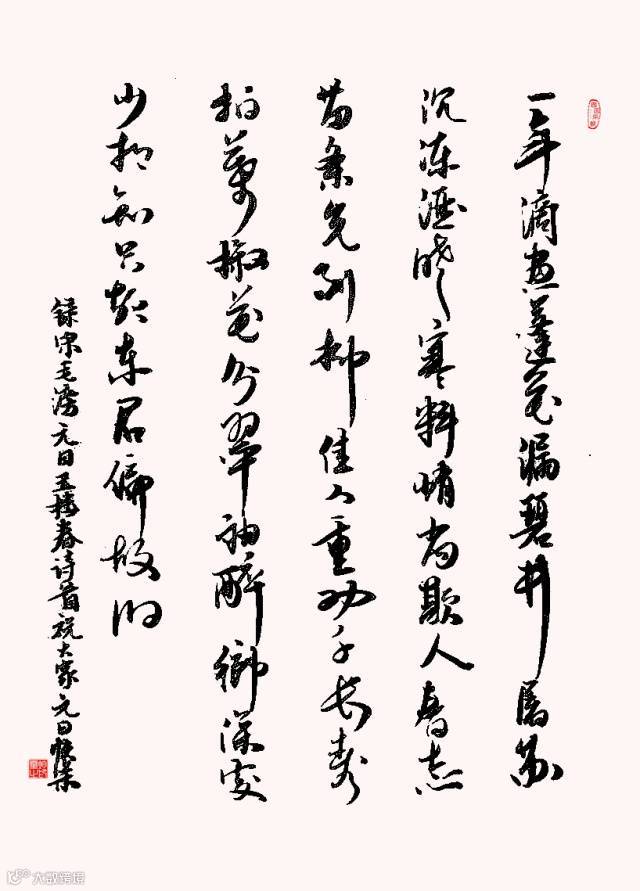 一年滴尽莲花漏碧井屠苏
沉冻酒晓寒料峭尚欺人春态
苗条先到柳佳人重劝千长寿
柏叶椒花分翠袖醉乡深处
少相知只与东君偏故旧
録宋毛滂元日玉楼春诗首祝大家元日快乐
大数跨境